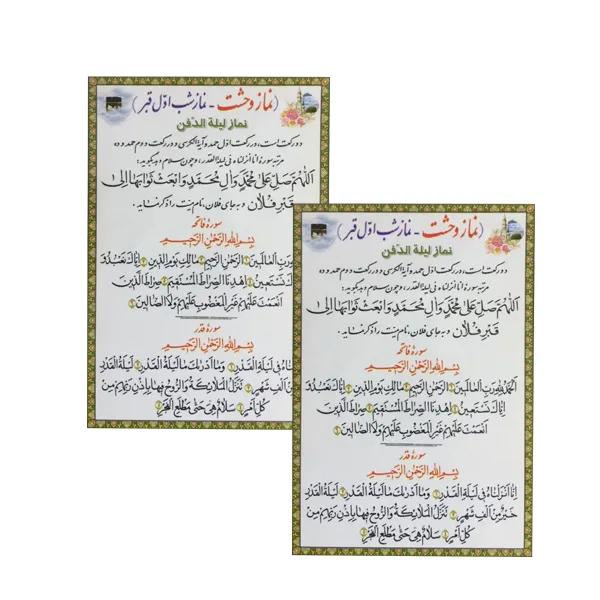 (نماز وحشت - نماز شب اوّل قبر)
نماز لیلة الدّفن
دو رکعت است، در رکعت اوّل حمد و آیة الکرسی و در رکعت دوم حمد و ده
مرتبه سورهٔ انا انزلناه فی لیلة القدر، و چون سلام دهد بگوید:
اَللّٰهُمَّ صَلِّ عَلیٰ مُحَمَّدٍ وَ آلِ مُحَمَّدٍ وَ ابْعَثْ ثَوابَها اِلیٰ
قَبْرِ فُلان و به جای فلان، نام میّت را ذکر نماید.
سورهٔ فاتحه
بِسْمِ اللهِ الرَّحْمٰنِ الرَّحیمِ
رَبِّ الْعالَمینَ الرَّحْمٰنِ الرَّحیمِ مالِکِ یَوْمِ الدّینِ اِیّاکَ نَعْبُدُ
نَسْتَعینُ اِهْدِنَا الصِّراطَ الْمُسْتَقیمَ صِراطَ الَّذینَ
اَنْعَمْتَ عَلَیْهِمْ غَیْرِ الْمَغْضُوبِ عَلَیْهِمْ وَلَا الضّالّینَ
سورهٔ قدر
بِسْمِ اللهِ الرَّحْمٰنِ الرَّحیمِ
فی لَیْلَةِ الْقَدْرِ وَما اَدْریٰکَ ما لَیْلَةُ الْقَدْرِ لَیْلَةُ الْقَدْرِ
اَلْفِ شَهْرٍ تَنَزَّلُ الْمَلائِکَةُ وَالرُّوحُ فیها بِاِذْنِ رَبِّهِمْ مِنْ
کُلِّ اَمْرٍ سَلامٌ هِیَ حَتّیٰ مَطْلَعِ الْفَجْرِ
(نماز وحشت - نماز شب اوّل قبر)
نماز لیلة الدّفن
دو رکعت است، در رکعت اوّل حمد و آیة الکرسی و در رکعت دوم حمد و ده
مرتبه سورهٔ انا انزلناه فی لیلة القدر، و چون سلام دهد بگوید:
اَللّٰهُمَّ صَلِّ عَلیٰ مُحَمَّدٍ وَ آلِ مُحَمَّدٍ وَ ابْعَثْ ثَوابَها اِلیٰ
قَبْرِ فُلان و به جای فلان، نام میّت را ذکر نماید.
سورهٔ فاتحه
بِسْمِ اللهِ الرَّحْمٰنِ الرَّحیمِ
اَلْحَمْدُ لِلّٰهِ رَبِّ الْعالَمینَ ۱ الرَّحْمٰنِ الرَّحیمِ ۲ مالِکِ یَوْمِ الدّینِ ۳ اِیّاکَ نَعْبُدُ
وَ اِیّاکَ نَسْتَعینُ ۴ اِهْدِنَا الصِّراطَ الْمُسْتَقیمَ ۵ صِراطَ الَّذینَ
اَنْعَمْتَ عَلَیْهِمْ غَیْرِ الْمَغْضُوبِ عَلَیْهِمْ وَلَا الضّالّینَ
سورهٔ قدر
بِسْمِ اللهِ الرَّحْمٰنِ الرَّحیمِ
اِنّا اَنْزَلْناهُ فی لَیْلَةِ الْقَدْرِ وَما اَدْریٰکَ ما لَیْلَةُ الْقَدْرِ لَیْلَةُ الْقَدْرِ
خَیْرٌ مِنْ اَلْفِ شَهْرٍ تَنَزَّلُ الْمَلائِکَةُ وَالرُّوحُ فیها بِاِذْنِ رَبِّهِمْ مِنْ
کُلِّ اَمْرٍ سَلامٌ هِیَ حَتّیٰ مَطْلَعِ الْفَجْرِ